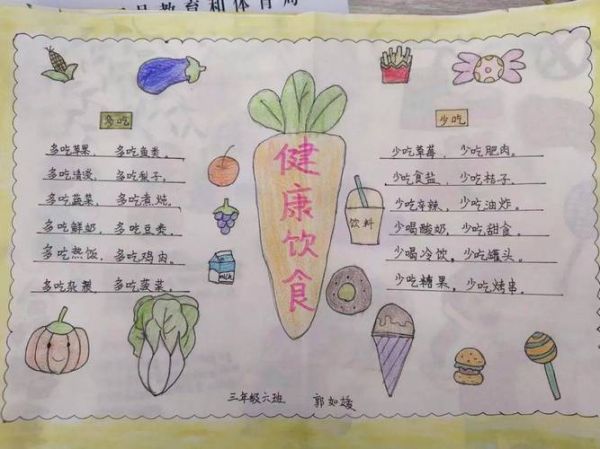 品教育和体育局
多吃
多吃苹果、多吃鱼类。
多吃清淡、多吃梨子。
多吃蔬菜、多吃煮炖。
多吃鲜奶、多吃豆类。
多吃热饭、多吃鸡肉。
多吃杂粮、多吃菠菜。
健康饮食
MILK
饮料
少吃
少吃草莓、少吃肥肉。
少吃食盐、少吃桔子。
少吃辛辣、少吃油炸。
少喝酸奶、少吃甜食。
少喝冷饮、少吃罐头。
少吃糖果、少吃烤串。
三年级六班 郭如媛